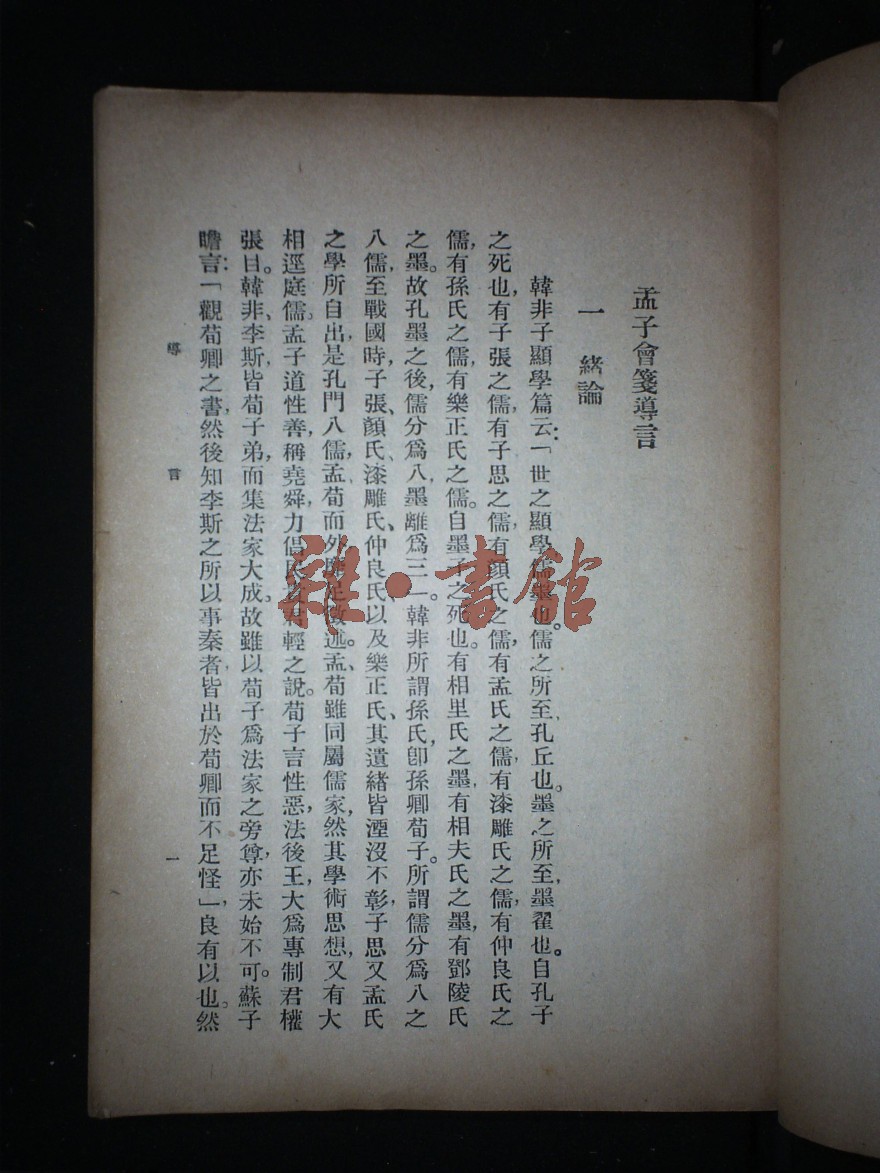 孟子會箋導言
一 緒論
韓非子顯學篇云:「世之顯學,儒墨也。儒之所至,孔丘也。墨之所至,墨翟也。自孔子
之死也,有子張之儒,有子思之儒,有顏氏之儒,有孟氏之儒,有漆雕氏之儒,有仲良氏之
儒,有孫氏之儒,有樂正氏之儒。自墨子之死也。有相里氏之墨,有相夫氏之墨,有鄧陵氏
之墨。故孔墨之後,儒分爲八,墨離爲三」。韓非所謂孫氏,卽孫卿荀子。所謂儒分爲八之
八儒,至戰國時,子張、顏氏、漆雕氏、仲良氏、以及樂正氏、其遺緒皆湮沒不彰,子思又孟氏
之學所自出,是孔門八儒,孟荀而外,足徵述。孟、荀雖同屬儒家,然其學術思想,又有大
相逕庭儒。孟子道性善,稱堯舜,力倡民君輕之說。荀子言性惡,法後王,大爲專制君權
張目。韓非、李斯,皆荀子弟,而集法家大成。故雖以荀子爲法家之旁尊,亦未始不可。蘇子
瞻言:「觀荀卿之書,然後知李斯之所以事秦者,皆出於荀卿而不足怪」,良有以也。然
導 言 一
雜·書館